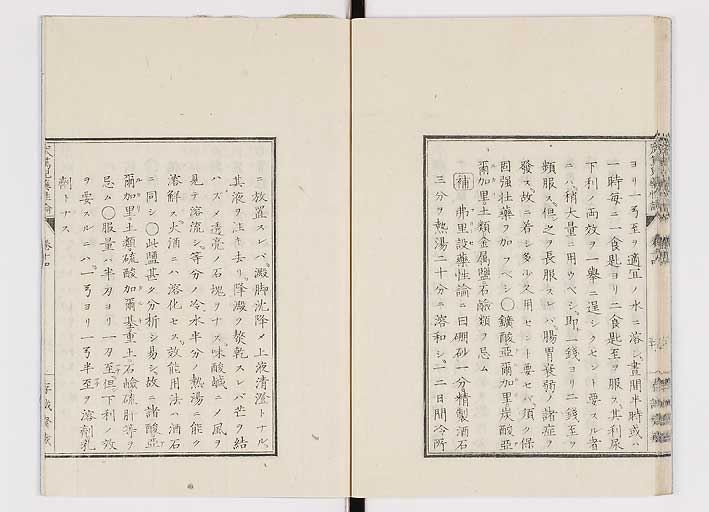 ヨリ一弓至ヲ適宜ノ水ニ溶シ晝間半時或ハ
一時每ニ一食匙ヨリ二食匙至ヲ服ス其利尿
下利ノ兩效ヲ一擧ニ逞シクセント要スル者
ニハ稍大量ニ用ウベシ即一錢ヨリ二錢至ヲ
頓服ス但之ヲ長服スレバ腸胃衰弱ノ諸症ヲ
發ス故ニ若シ多ルヌ用セント要セバ須ク保
固强壯藥ヲ加フベシ〇鑛酸亞爾加里炭酸亞
爾加里土類金属鹽石鹼類ヲ忌ム
補 弗里設藥性論ニ曰硼砂一分精製酒石
三分ヲ熱湯二十分ニ溶和シ一二日間冷所
ニ放置スレバ澱脚沈降メ上液清澄トナル
其液ヲ注キ去リ降澱ヲ蒸乾スレバ芒ヲ結
ハズメ透亮ノ石塊ヲナス味酸鹹ニノ風ヲ
見テ溶流シ等分ノ冷水半分ノ熱湯ニ能ク
溶解ス火酒ニハ溶化セス效能用法ハ酒石
ニ同シ〇此鹽甚タ分析シ易シ故ニ諸酸亞
爾加里土類硫酸加爾基重土石鹼硫肝等ヲ
忌ム〇服量ハ半刃ヨリ一刃至但下利ノ效
ヲ要スルニハ一弓ヨリ一弓半至ヲ溶劑乳
劑トナス
卷十四